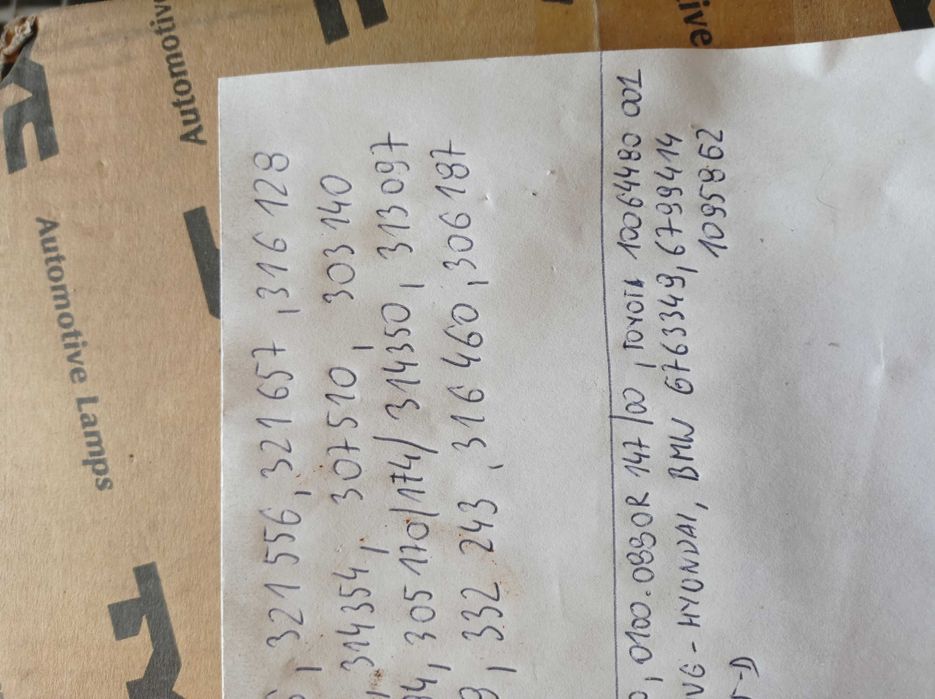 Automotive
Automotive Lamps
ive
, 321 556, 321 657, 316 128
, 314354, 307510, 303 140
04, 305 170/174/ 314350, 313 097
, 332 243, 316 460, 306 187
0, 0100.0990R 147/00, TOYOTA 10064480 001
- HYUNDAI, BMW 6763349, 6799414
1095862